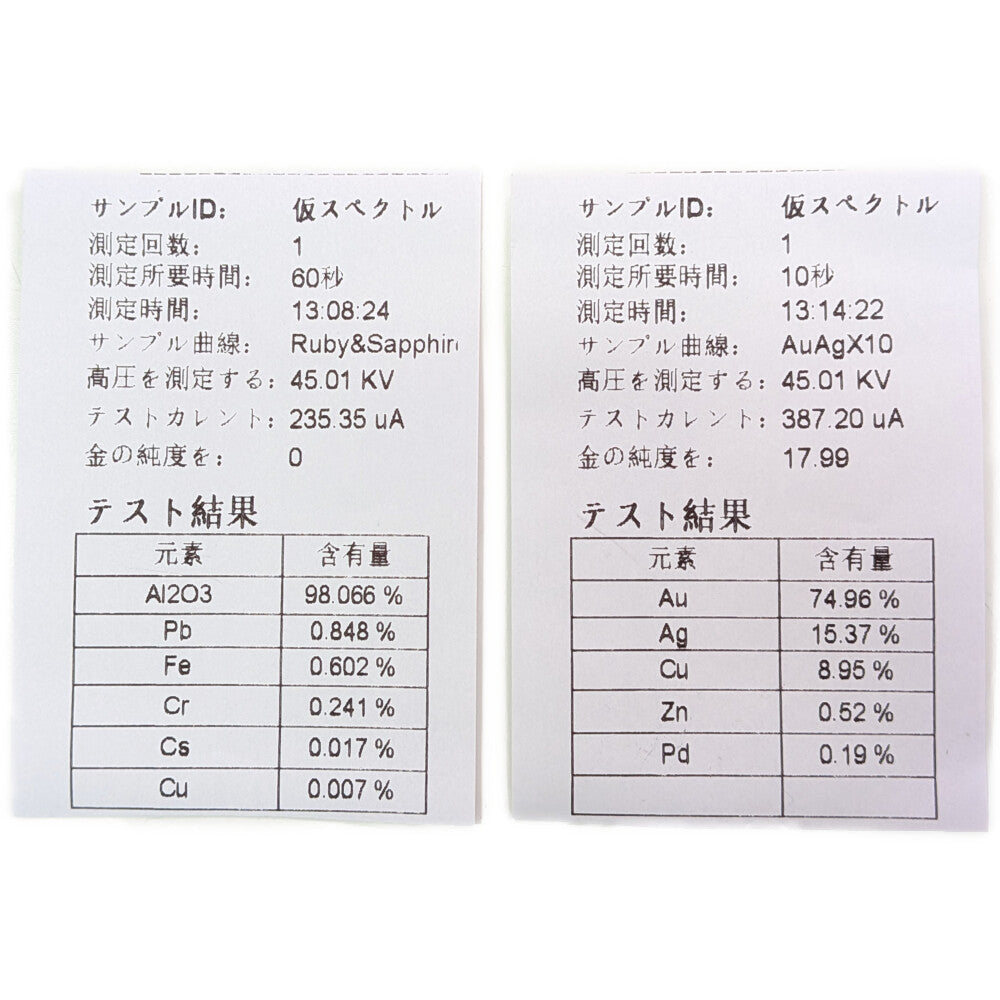 サンプルID: 仮スペクトル
測定回数: 1
測定所要時間: 60秒
測定時間: 13:08:24
サンプル曲線: Ruby&Sapphir
高圧を測定する: 45.01 KV
テストカレント: 235.35 uA
金の純度を: 0
テスト結果
元素 含有量
Al2O3 98.066 %
Pb 0.848 %
Fe 0.602 %
Cr 0.241 %
Cs 0.017 %
Cu 0.007 %
サンプルID: 仮スペクトル
測定回数: 1
測定所要時間: 10秒
測定時間: 13:14:22
サンプル曲線: AuAgX10
高圧を測定する: 45.01 KV
テストカレント: 387.20 uA
金の純度を: 17.99
テスト結果
元素 含有量
Au 74.96 %
Ag 15.37 %
Cu 8.95 %
Zn 0.52 %
Pd 0.19 %